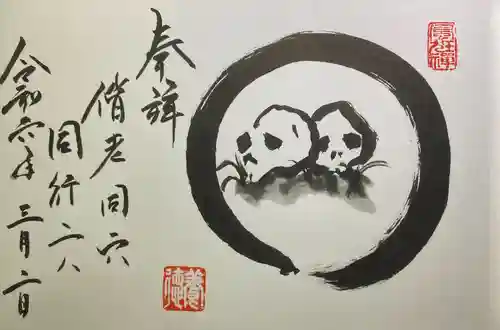 奉拝
偕老同穴
同行二人
令和六年三月二日
養徳